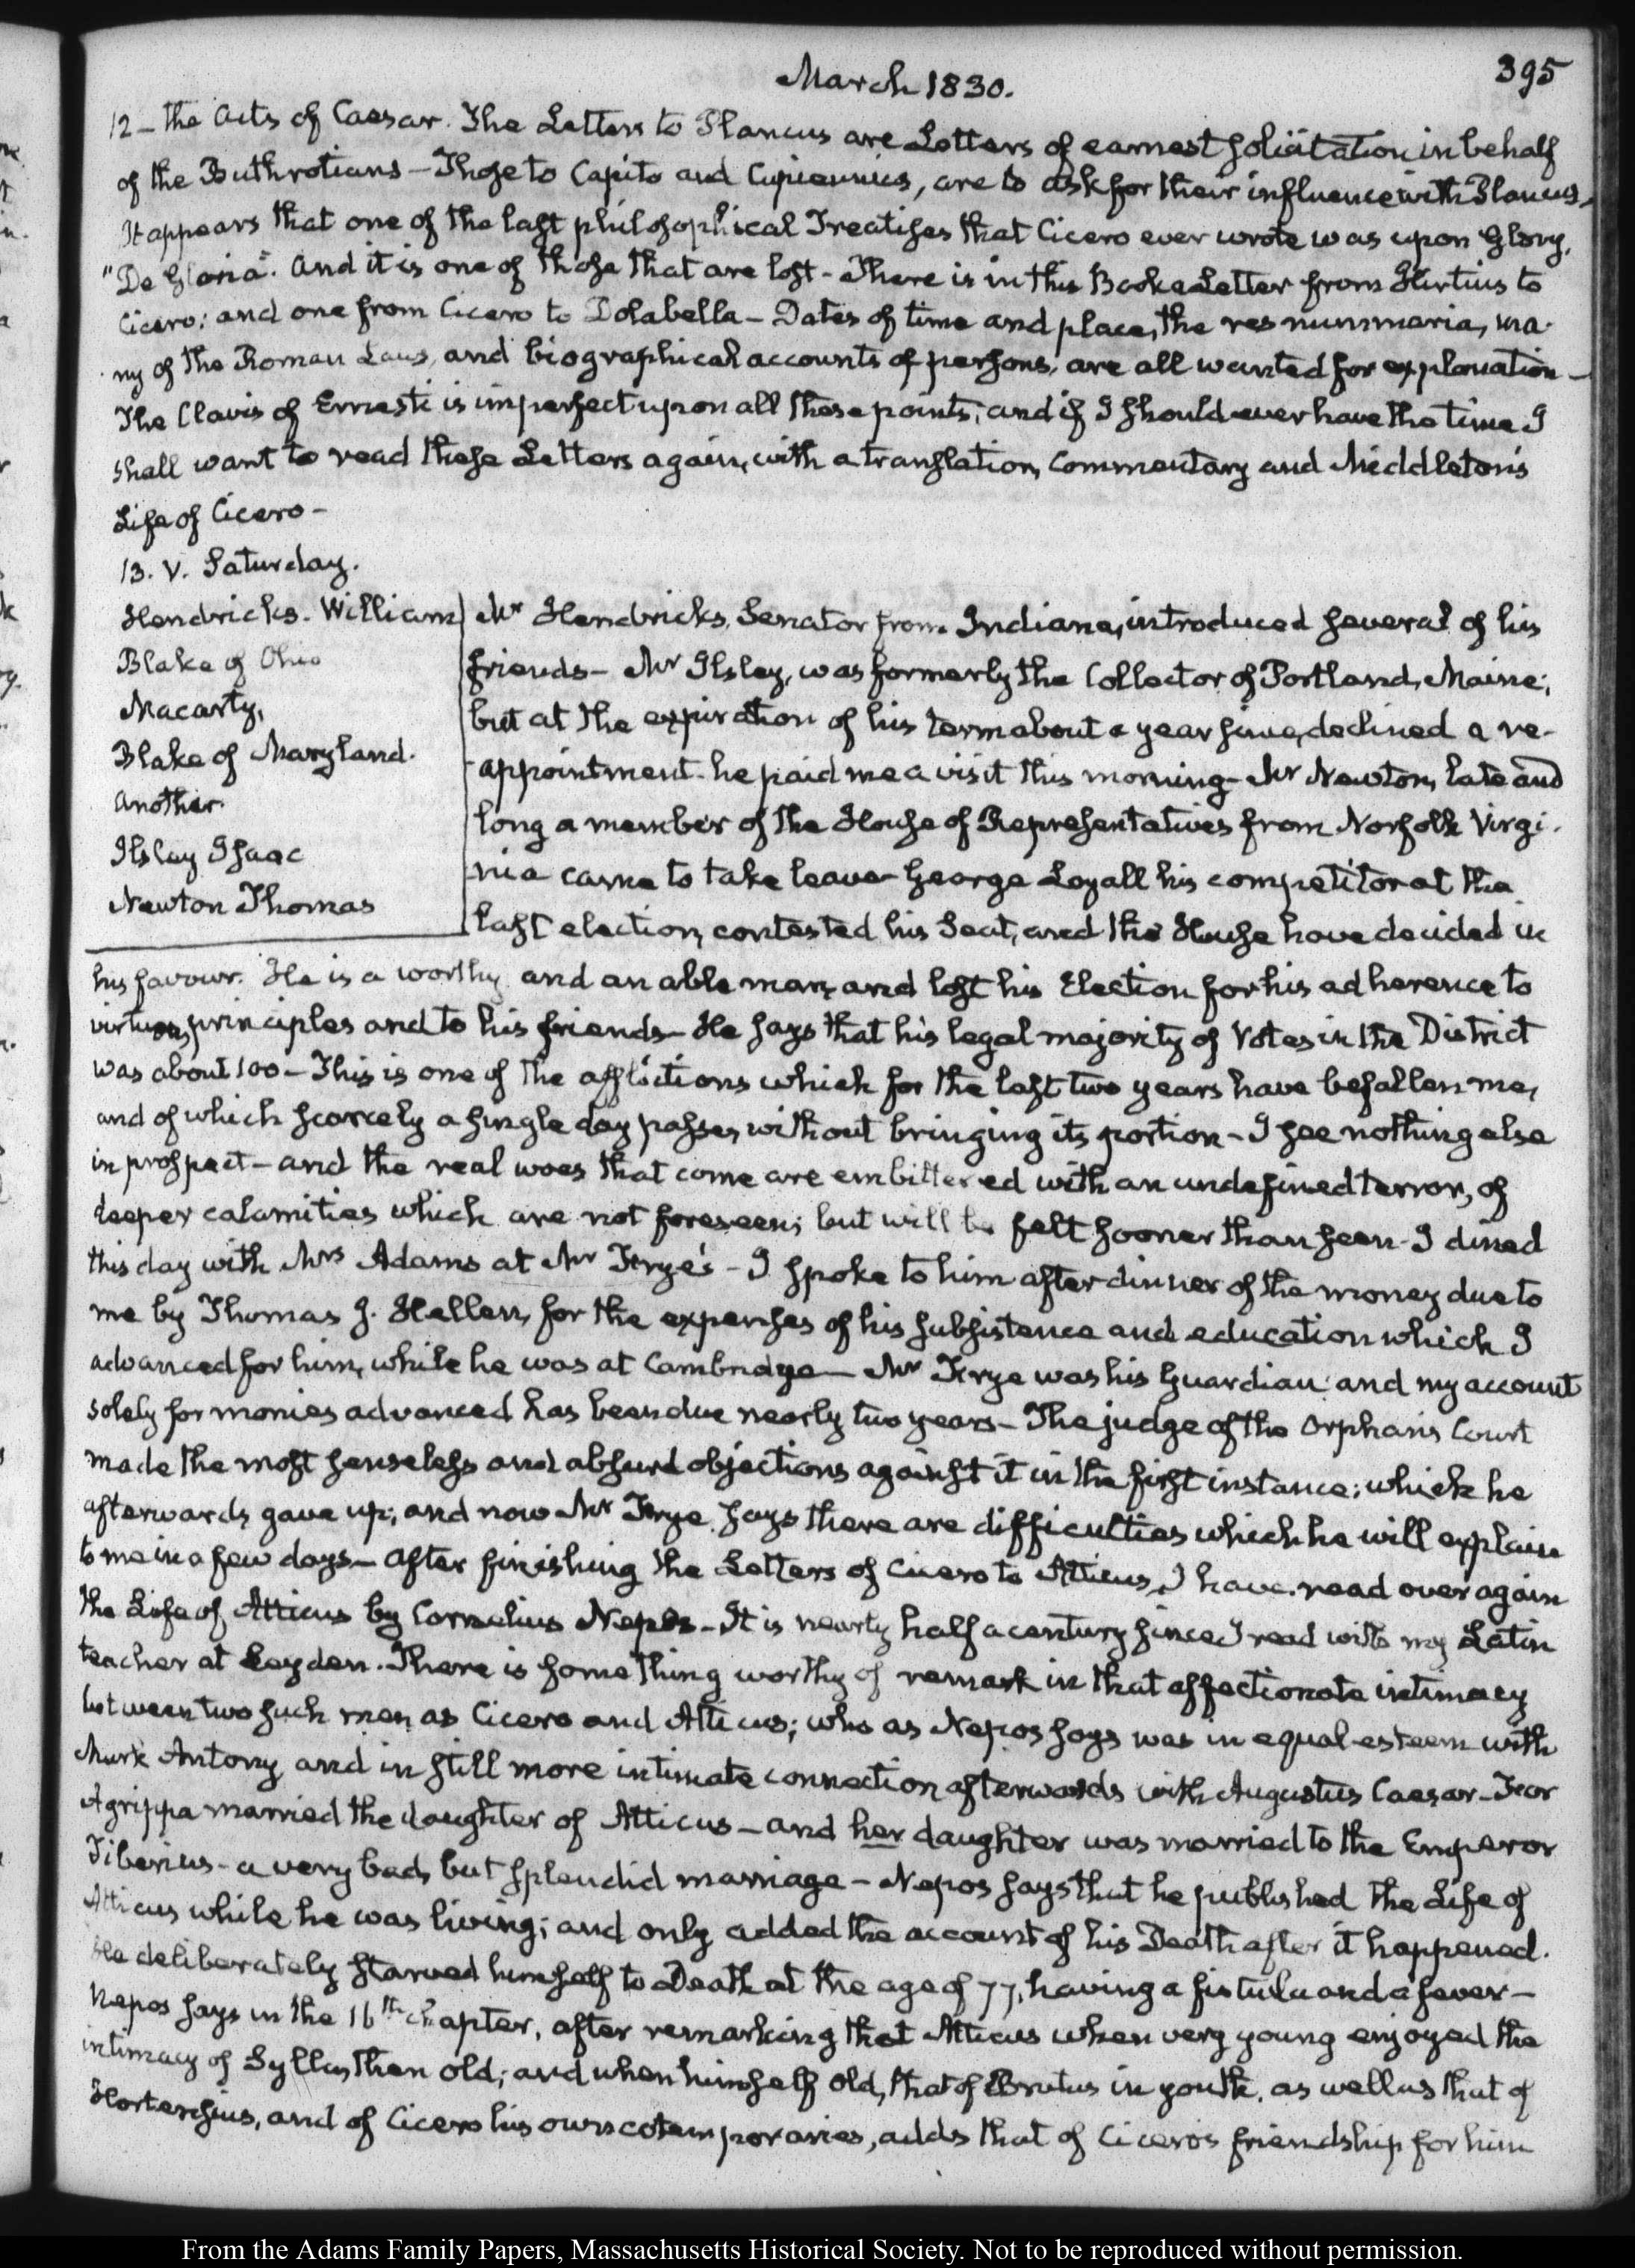 March 1830.
395
12 – the Acts of Caesar. The Letters to Plancus are Letters of earnest solicitation in behalf
of the Buthrotians – Those to Capito and Cupiennius, are to ask for their influence with Plancus.
It appears that one of the last philosophical Treatises that Cicero ever wrote was upon Glory.
"De Gloria". And it is one of those that are lost – There is in this Book a Letter from Hirtius to
Cicero: and one from Cicero to Dolabella – Dates of time and place, the res nummaria, ma-
ny of the Roman Laws, and biographical accounts of persons, are all wanted for explanation –
The Clavis of Ernesti is imperfect upon all these points; and if I should ever have the time I
shall want to read these Letters again, with a translation, commentary and Middleton's
Life of Cicero –
13. V. Saturday.
Hendricks. William
Blake of Ohio
Macarty,
Blake of Maryland.
Another.
Ilsley Isaac
Newton Thomas
Mr Hendricks, Senator from Indiana, introduced several of his
friends – Mr Ilsley, was formerly the Collector of Portland, Maine;
but at the expiration of his term about a year since, declined a re-
appointment – he paid me a visit this morning – Mr Newton, late and
long a member of the House of Representatives from Norfolk Virgi-
nia came to take leave – George Loyall his competitor at the
last election, contested his Seat, and the House have decided in
his favour. He is a worthy and an able man, and lost his Election for his adherence to
virtuous principles and to his friends – He says that his legal majority of Votes in the District
was about 100 – This is one of the afflictions which for the last two years have befallen me,
and of which scarcely a single day passes, without bringing its portion – I see nothing else
in prospect – and the real woes that come are embittered with an undefined terror, of
deeper calamities which are not foreseen; but will be felt sooner than seen – I dined
this day with Mrs Adams at Mr Frye's – I spoke to him after dinner of the money due to
me by Thomas J. Hellen, for the expenses of his subsistence and education which I
advanced for him, while he was at Cambridge – Mr Frye was his Guardian and my account
solely for monies advanced has been due nearly two years – The judge of the Orphan's Court
made the most senseless and absurd objections against it in the first instance; which he
afterwards gave up; and now Mr Frye says there are difficulties which he will explain
to me in a few days – After finishing the Letters of Cicero to Atticus, I have read over again
the Life of Atticus by Cornelius Nepos – It is nearly half a century since I read with my Latin
teacher at Leyden. There is something worthy of remark in that affectionate intimacy
between two such men as Cicero and Atticus; who as Nepos says was in equal esteem with
Mark Antony and in still more intimate connection afterwards with Augustus Caesar – For
Agrippa married the daughter of Atticus – and her daughter was married to the Emperor
Tiberius – a very bad, but splendid marriage – Nepos says that he published the Life of
Atticus while he was living; and only added the account of his Death after it happened.
He deliberately starved himself to Death at the age of 77, having a fistula and a fever –
Nepos says in the 16th chapter, after remarking that Atticus when very young enjoyed the
intimacy of Sylla, then old; and when himself old, that of Brutus in youth, as well as that of
Hortensius, and of Cicero his own cotemporaries, adds that of Cicero's friendship for him
From the Adams Family Papers, Massachusetts Historical Society. Not to be reproduced without permission.